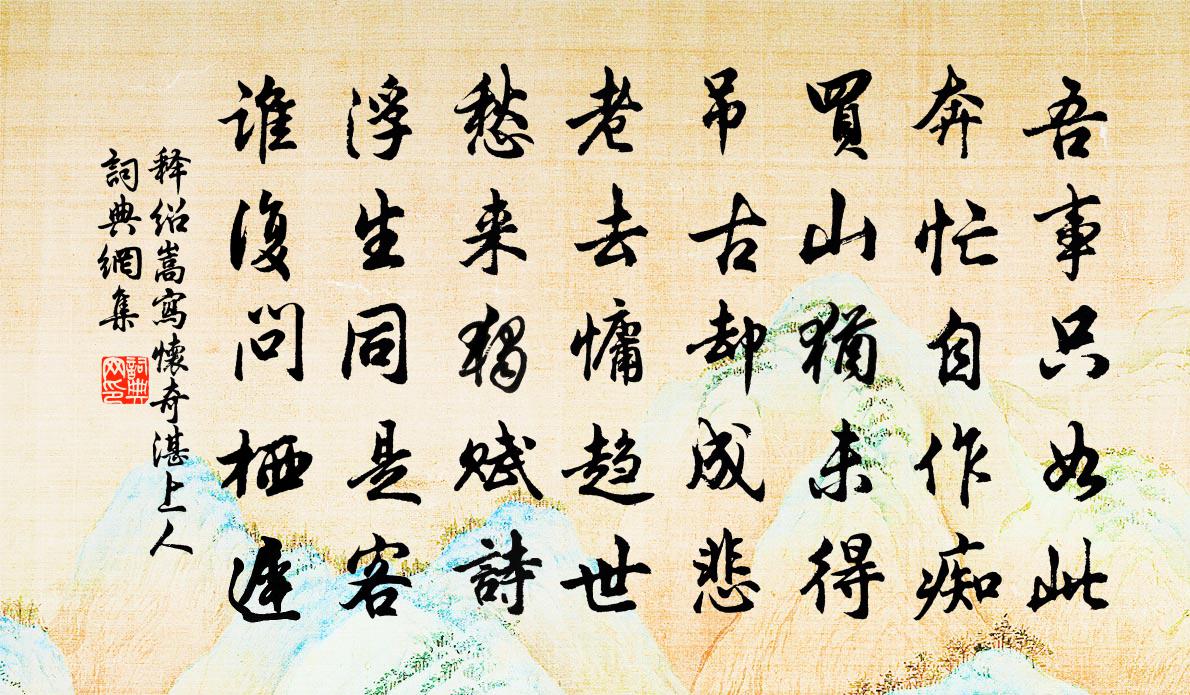 吾事只如此
奔忙自作痴
買山猶未得
吊古却成悲
老去慵趋世
愁来独赋詩
浮生同是客
谁復問栖遲
释绍嵩寫懷寄湛上人
詞典網集
詞典网印